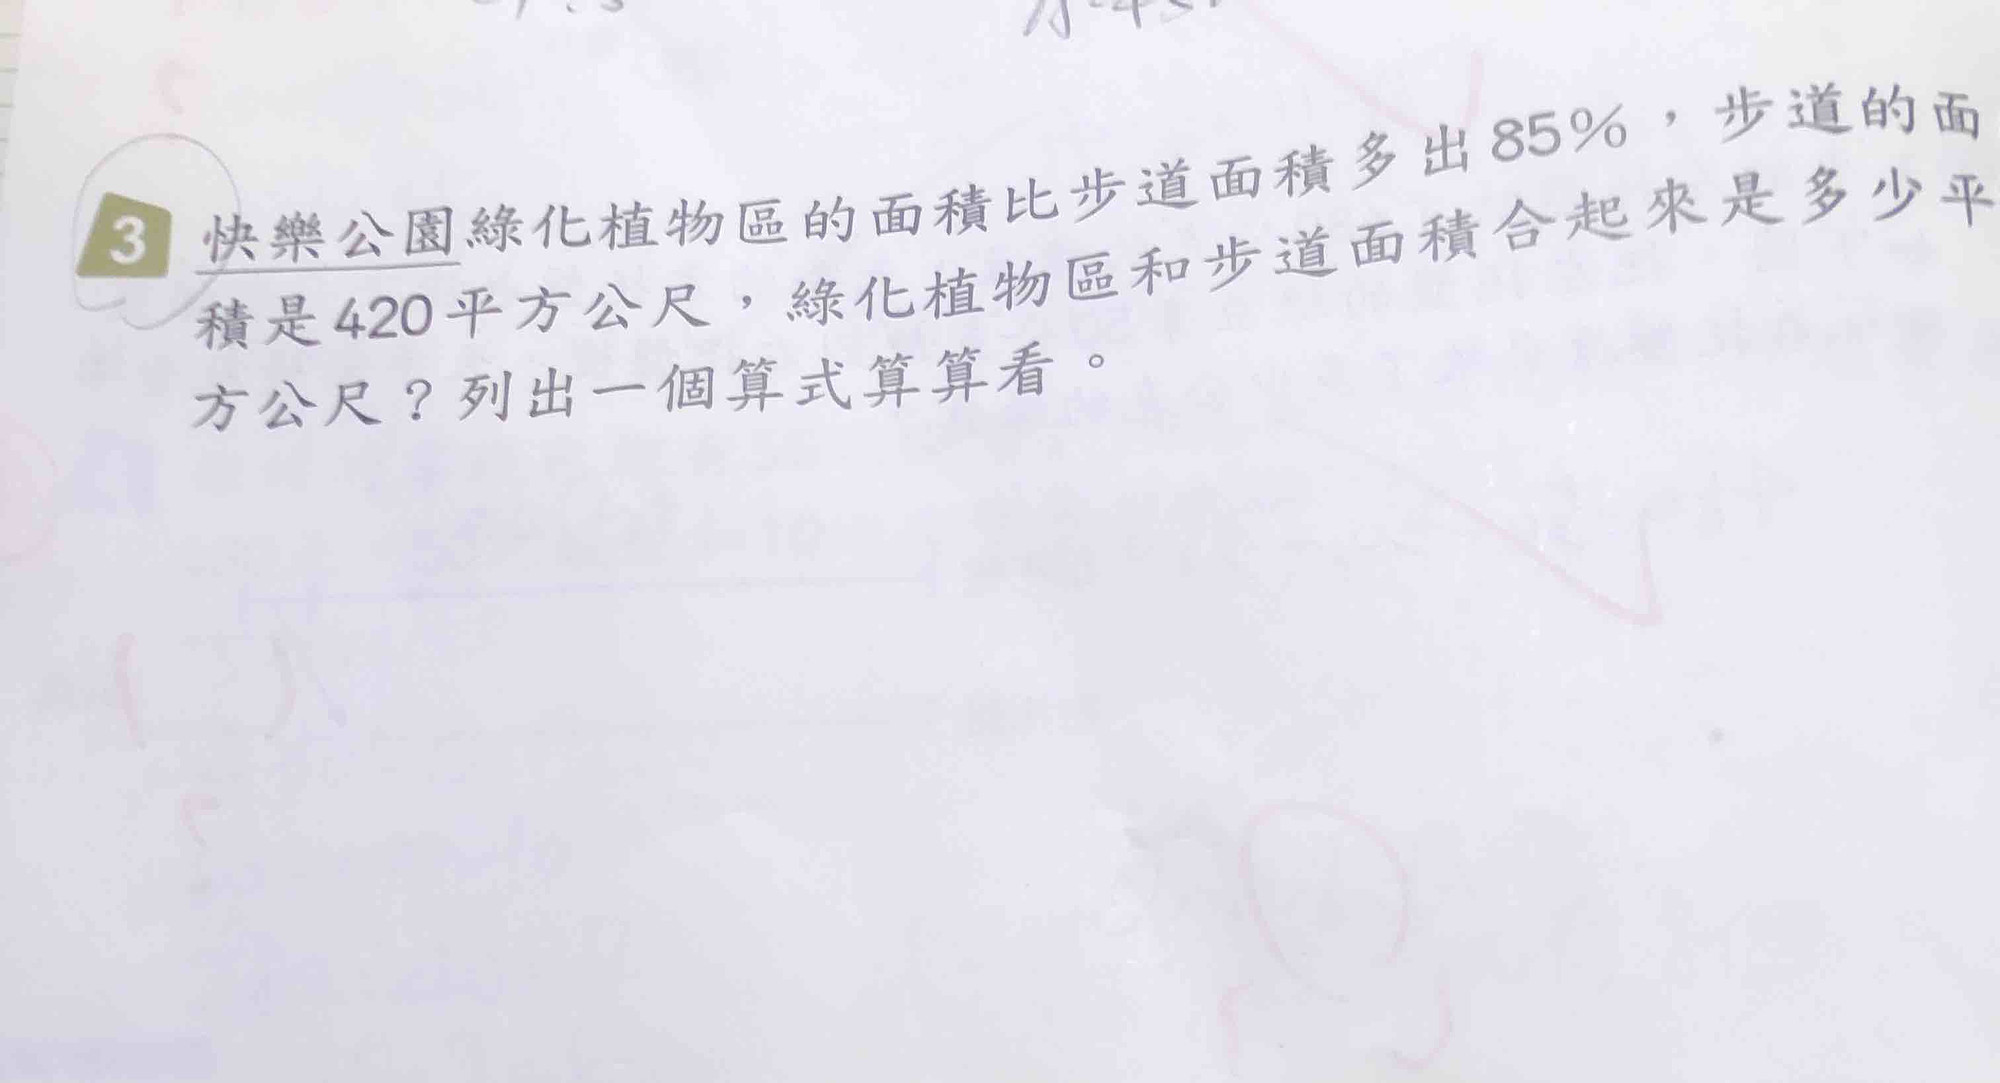 3 快樂公園綠化植物區的面積比步道面積多出85%，步道的面
積是420平方公尺，綠化植物區和步道面積合起來是多少平
方公尺？列出一個算式算算看。